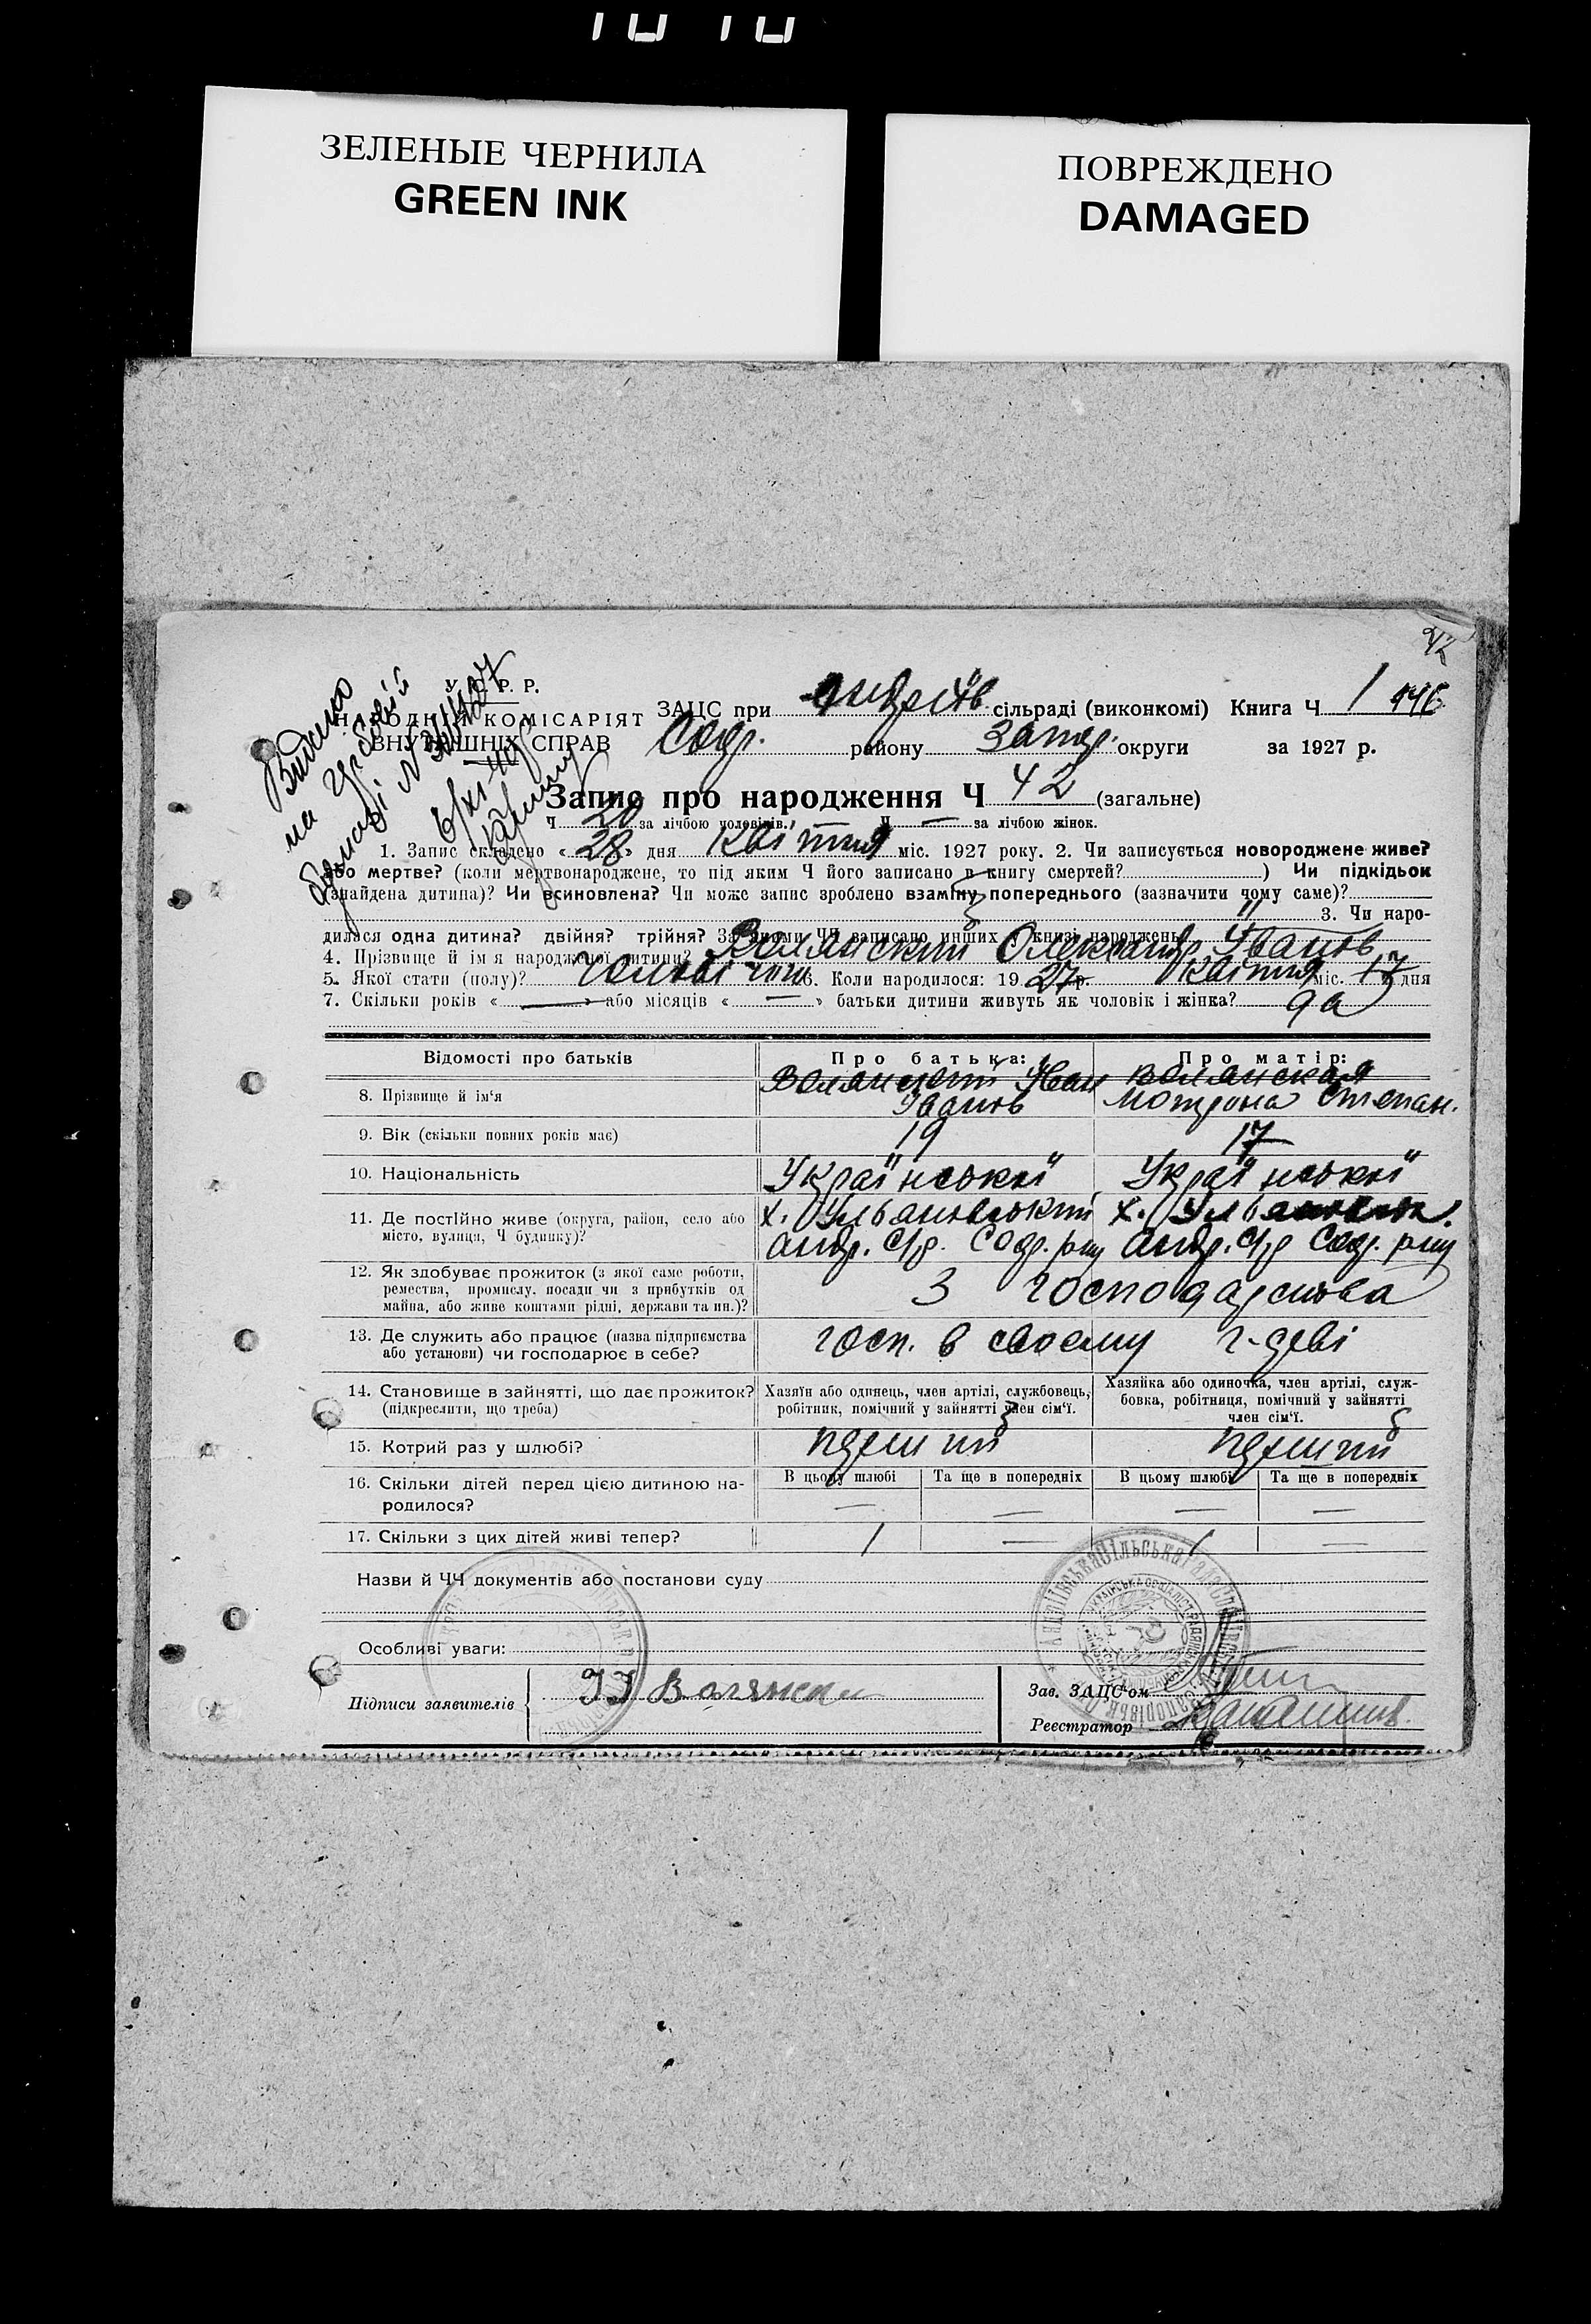 ЗЕЛЕНЫЕ ЧЕРНИЛА
GREEN INK
ПОВРЕЖДЕНО
DAMAGED
42
У. С. Р. Р.
НАРОДНІЙ КОМІСАРІЯТ
ВНУТРІШНІХ СПРАВ
Видано
на
6/XI-40
ЗАЦС при Андріїв. сільраді (виконкомі) Книга Ч 1
Софі. району Запор. округи за 1927 р.
Запис про народження Ч 42 (загальне)
Ч 20 за лічбою чоловіків. Ч — за лічбою жінок.
1. Запис складено «28» дня Квітня міс. 1927 року. 2. Чи записується новороджене живе?
або мертве? (коли мертвонароджене, то під яким Ч його записано в книгу смертей?) Чи підкідьок
(знайдена дитина)? Чи всиновлена? Чи може запис зроблено взаміну попереднього (зазначити чому саме)?
3. Чи наро-
дилася одна дитина? двійня? трійня? За якими ЧЧ записано инших у книзі народжень
4. Прізвище й ім'я народженої дитини? Волянский Олександр Іванов
5. Якої стати (полу)? чоловічої 6. Коли народилося: 1927 р. Квітня міс. 17 дня
7. Скільки років « — » або місяців « — » батьки дитини живуть як чоловік і жінка? да
Відомості про батьків Про батька: Про матір:
8. Прізвище й ім'я Волянский Іван Іванов Волянская Мотрона Степан.
9. Вік (скільки повних років має) 19 17
10. Національність Української Української
11. Де постійно живе (округа, район, село або
місто, вулиця, Ч будинку)? х. Ульановський Андр. с/р. Софі. р-ну х. Андр. с/р Софі. р-ну
12. Як здобуває прожиток (з якої саме роботи,
ремества, промислу, посади чи з прибутків од
майна, або живе коштами рідні, держави та ин.)? З господарства
13. Де служить або працює (назва підприємства
або установи) чи господарює в себе? госп. в своему г-деві
14. Становище в зайнятті, що дає прожиток?
(підкреслити, що треба)
Хазяїн або одинець, член артілі, службовець,
робітник, помічний у зайнятті член сім'ї.
Хазяйка або одиночка, член артілі, служ-
бовка, робітниця, помічний у зайнятті
член сім'ї.
15. Котрий раз у шлюбі? перший перший
16. Скільки дітей перед цією дитиною на-
родилося?
В цьому шлюбі Та ще в попередніх В цьому шлюбі Та ще в попередніх
— — — —
17. Скільки з цих дітей живі тепер? 1 — 1 —
Назви й ЧЧ документів або постанови суду
Особливі уваги:
Підписи заявителів І І Волянски
Зав. ЗАЦС'ом
Реєстратор